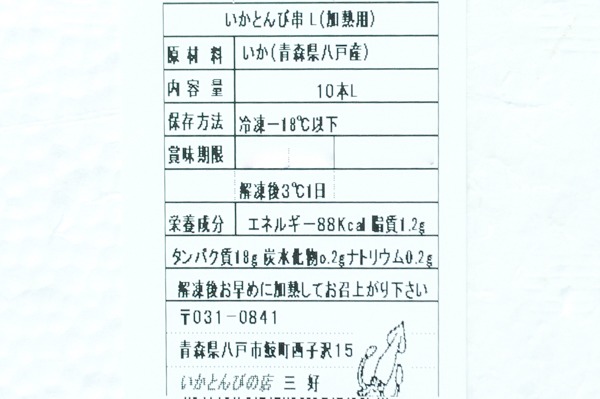 いかとんび串L(加熱用)
原材料 いか(青森県八戸産)
内容量 10本L
保存方法 冷凍ー18℃以下
賞味期限
解凍後3℃1日
栄養成分 エネルギー88Kcal 脂質1.2g
タンパク質18g 炭水化物0.2gナトリウム0.2g
解凍後お早めに加熱してお召上がり下さい
〒031-0841
青森県八戸市鮫町西子沢15
いかとんびの店 三好